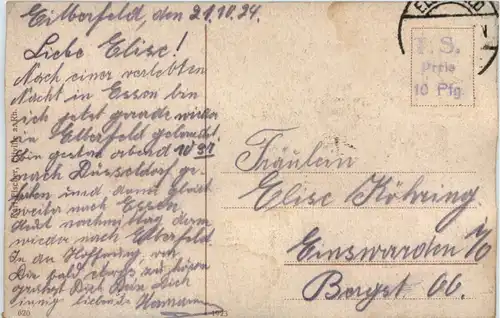 Elberfeld, den 21.10.24.
Liebe Elise!
Nach einer verlebten
Nacht in Essen bin
ich jetzt gerade wieder
in Elberfeld gelandet.
Bin gestern abend 10 37
nach Düsseldorf ge-
und dann
weiter nach Essen
Heut nachmittag dann
wieder nach Elberfeld
In der Hoffnung, von
Dir bald etwas zu hören
grüsst Dich Dein Dich
innig liebender Hermann
Fräulein
Elise Köhring
Einswarden i/O
Bergst. 66.
P. S.
Preis
10 Pfg.